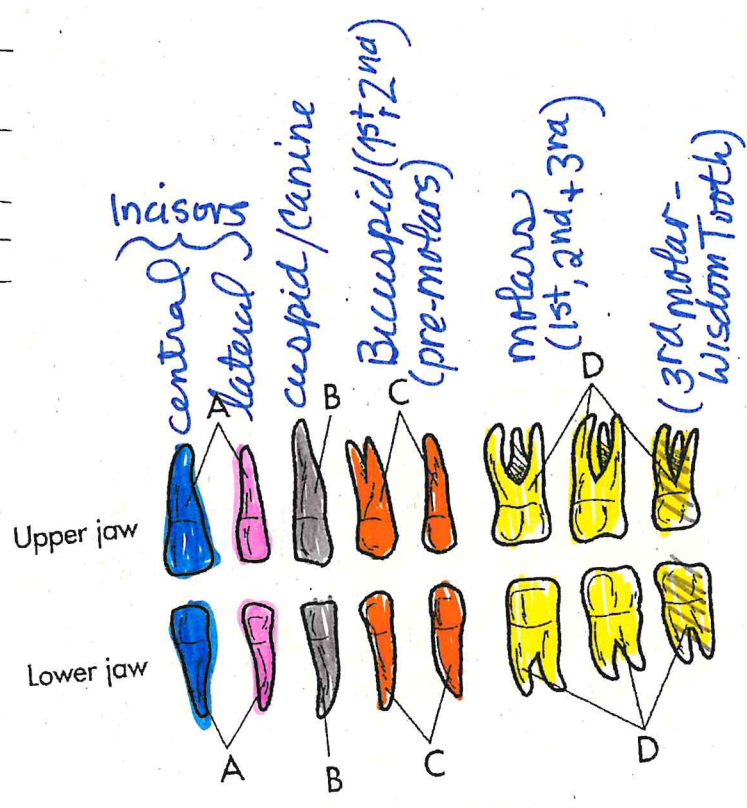 Incisors
central
lateral
cuspid/Canine
Bicuspid (1st, 2nd)
(pre-molars)
molars
(1st, 2nd + 3rd)
(3rd molar -
Wisdom Tooth)
A
B
C
D
Upper jaw
Lower jaw
A
B
C
D